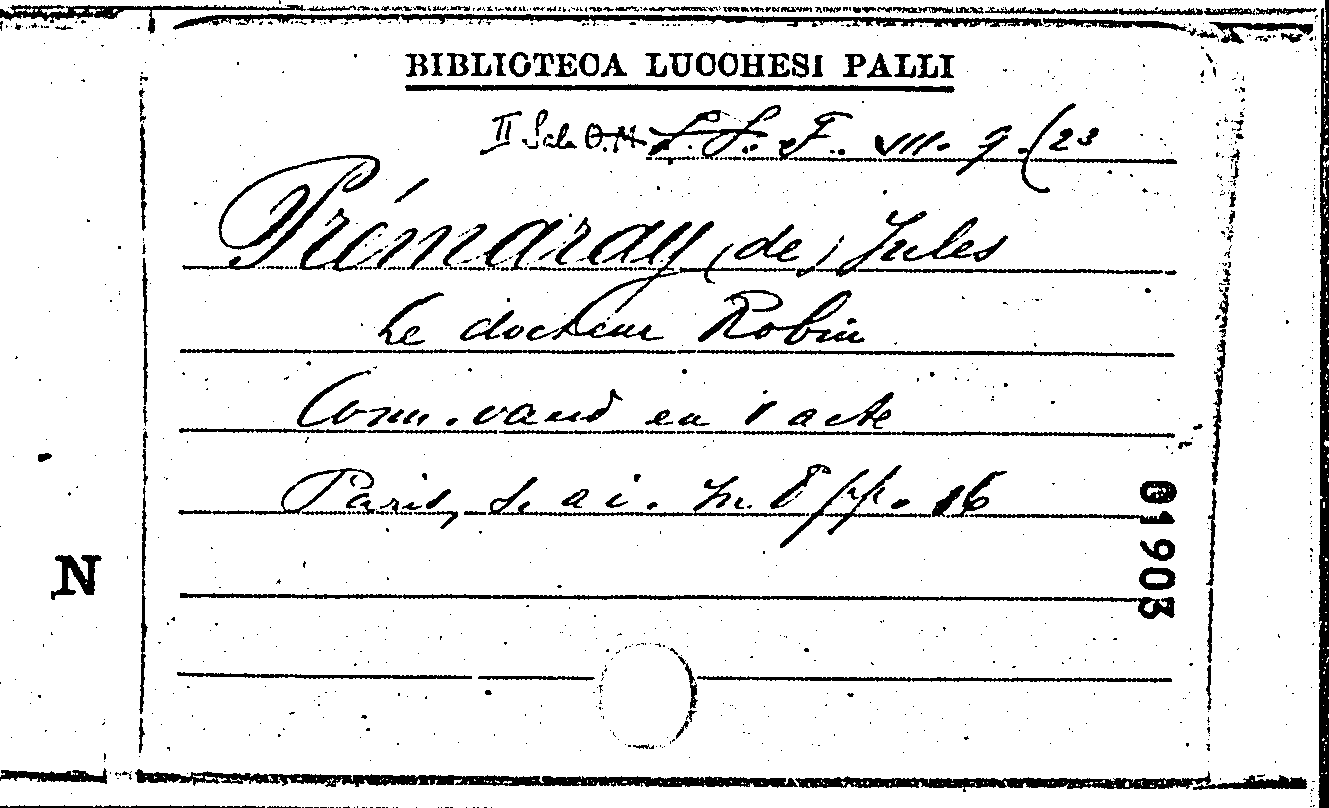 BIBLIOTECA LUCCHESI PALLI
II Sala O.M. L. L. F. VII. 9. (23
Prémaray (de) Jules
Le docteur Robin
Com. vaud en 1 acte
Paris, s. a i. in 8 pp. 16
01903
N